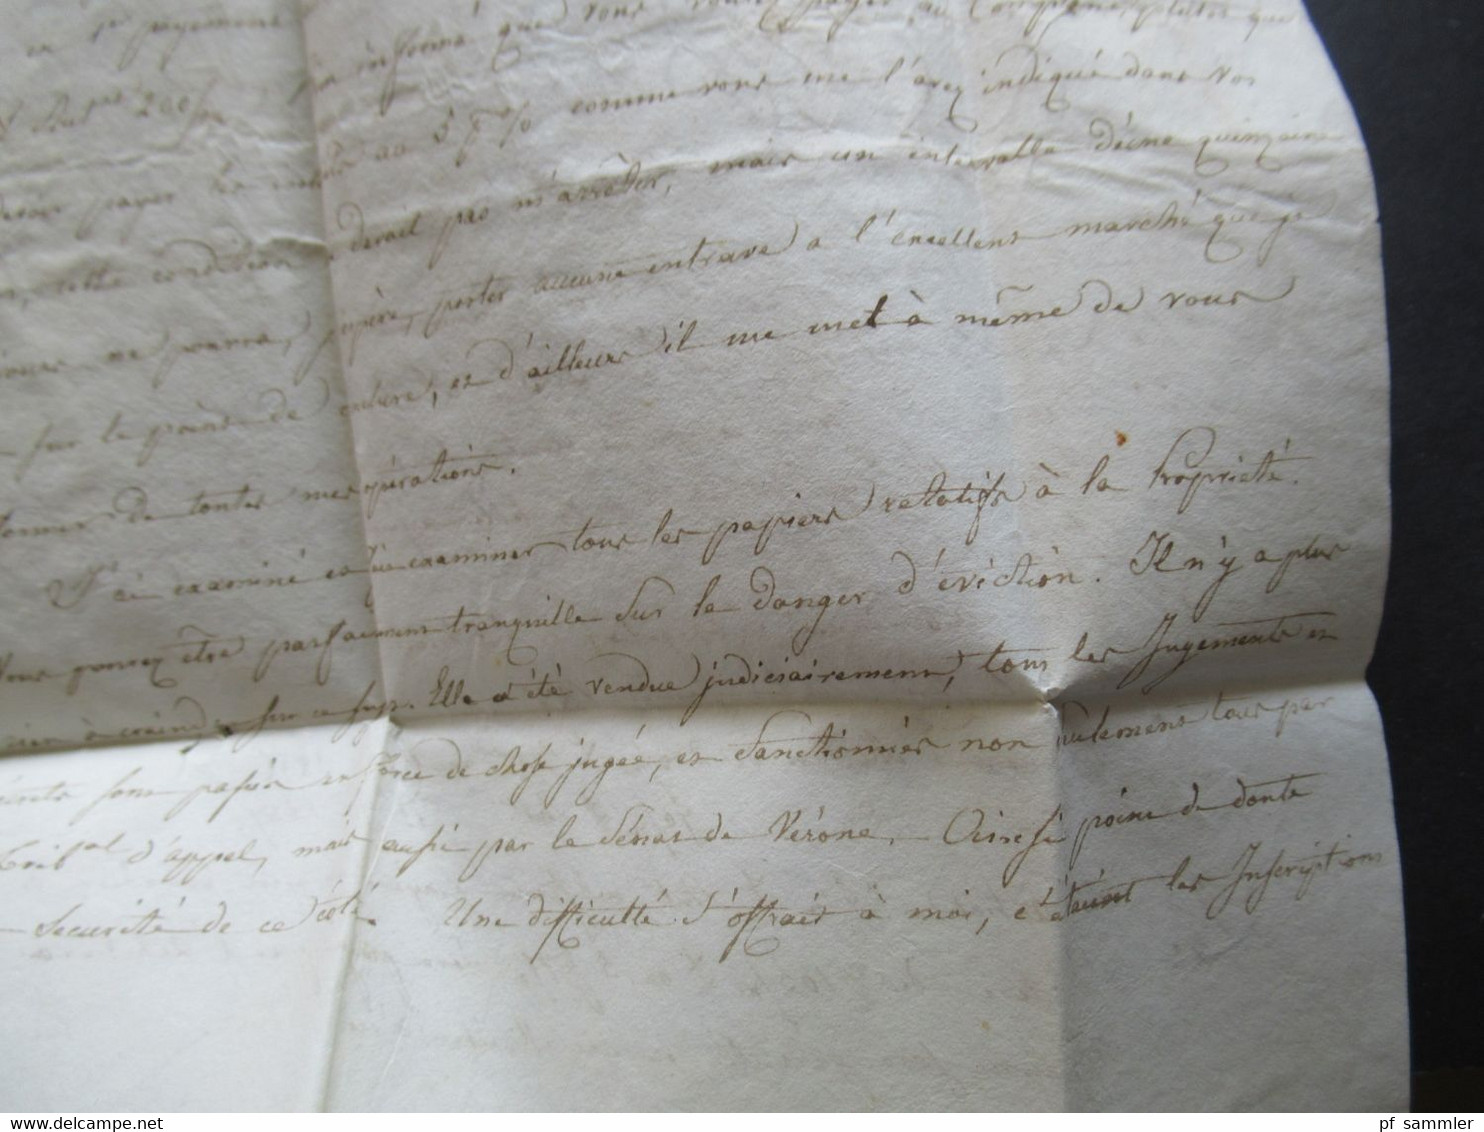 en payement informé que vous voulez payer au Comptant plutôt que
200 5 p % comme vous me l'avez indiqué dans vos
payer les intérêts devait pas m'arrêter, mais un intervalle d'une quinzaine
cette condition porter aucune entrave à l'excellent marché que je
ne pourra, j'espère, et d'ailleurs il me met à même de vous
sur le point de conclure,
de toutes mes opérations.
J'ai examiné et fait examiner tous les papiers relatifs à la Propriété.
Vous pouvez être parfaitement tranquille sur le danger d'éviction. Il n'y a plus
rien à craindre sur ce sujet. Elle a été vendue judiciairement, tous les Jugements et
sont passés en force de chose jugée, et sanctionnés non seulement tous par
Trib.al d'appel, mais aussi par le Sénat de Vérone. Ainsi point de doute
Securité de ce côté. Une difficulté s'offrait à moi, c'étaient les Inscriptions
pf_sammler
www.delcampe.net